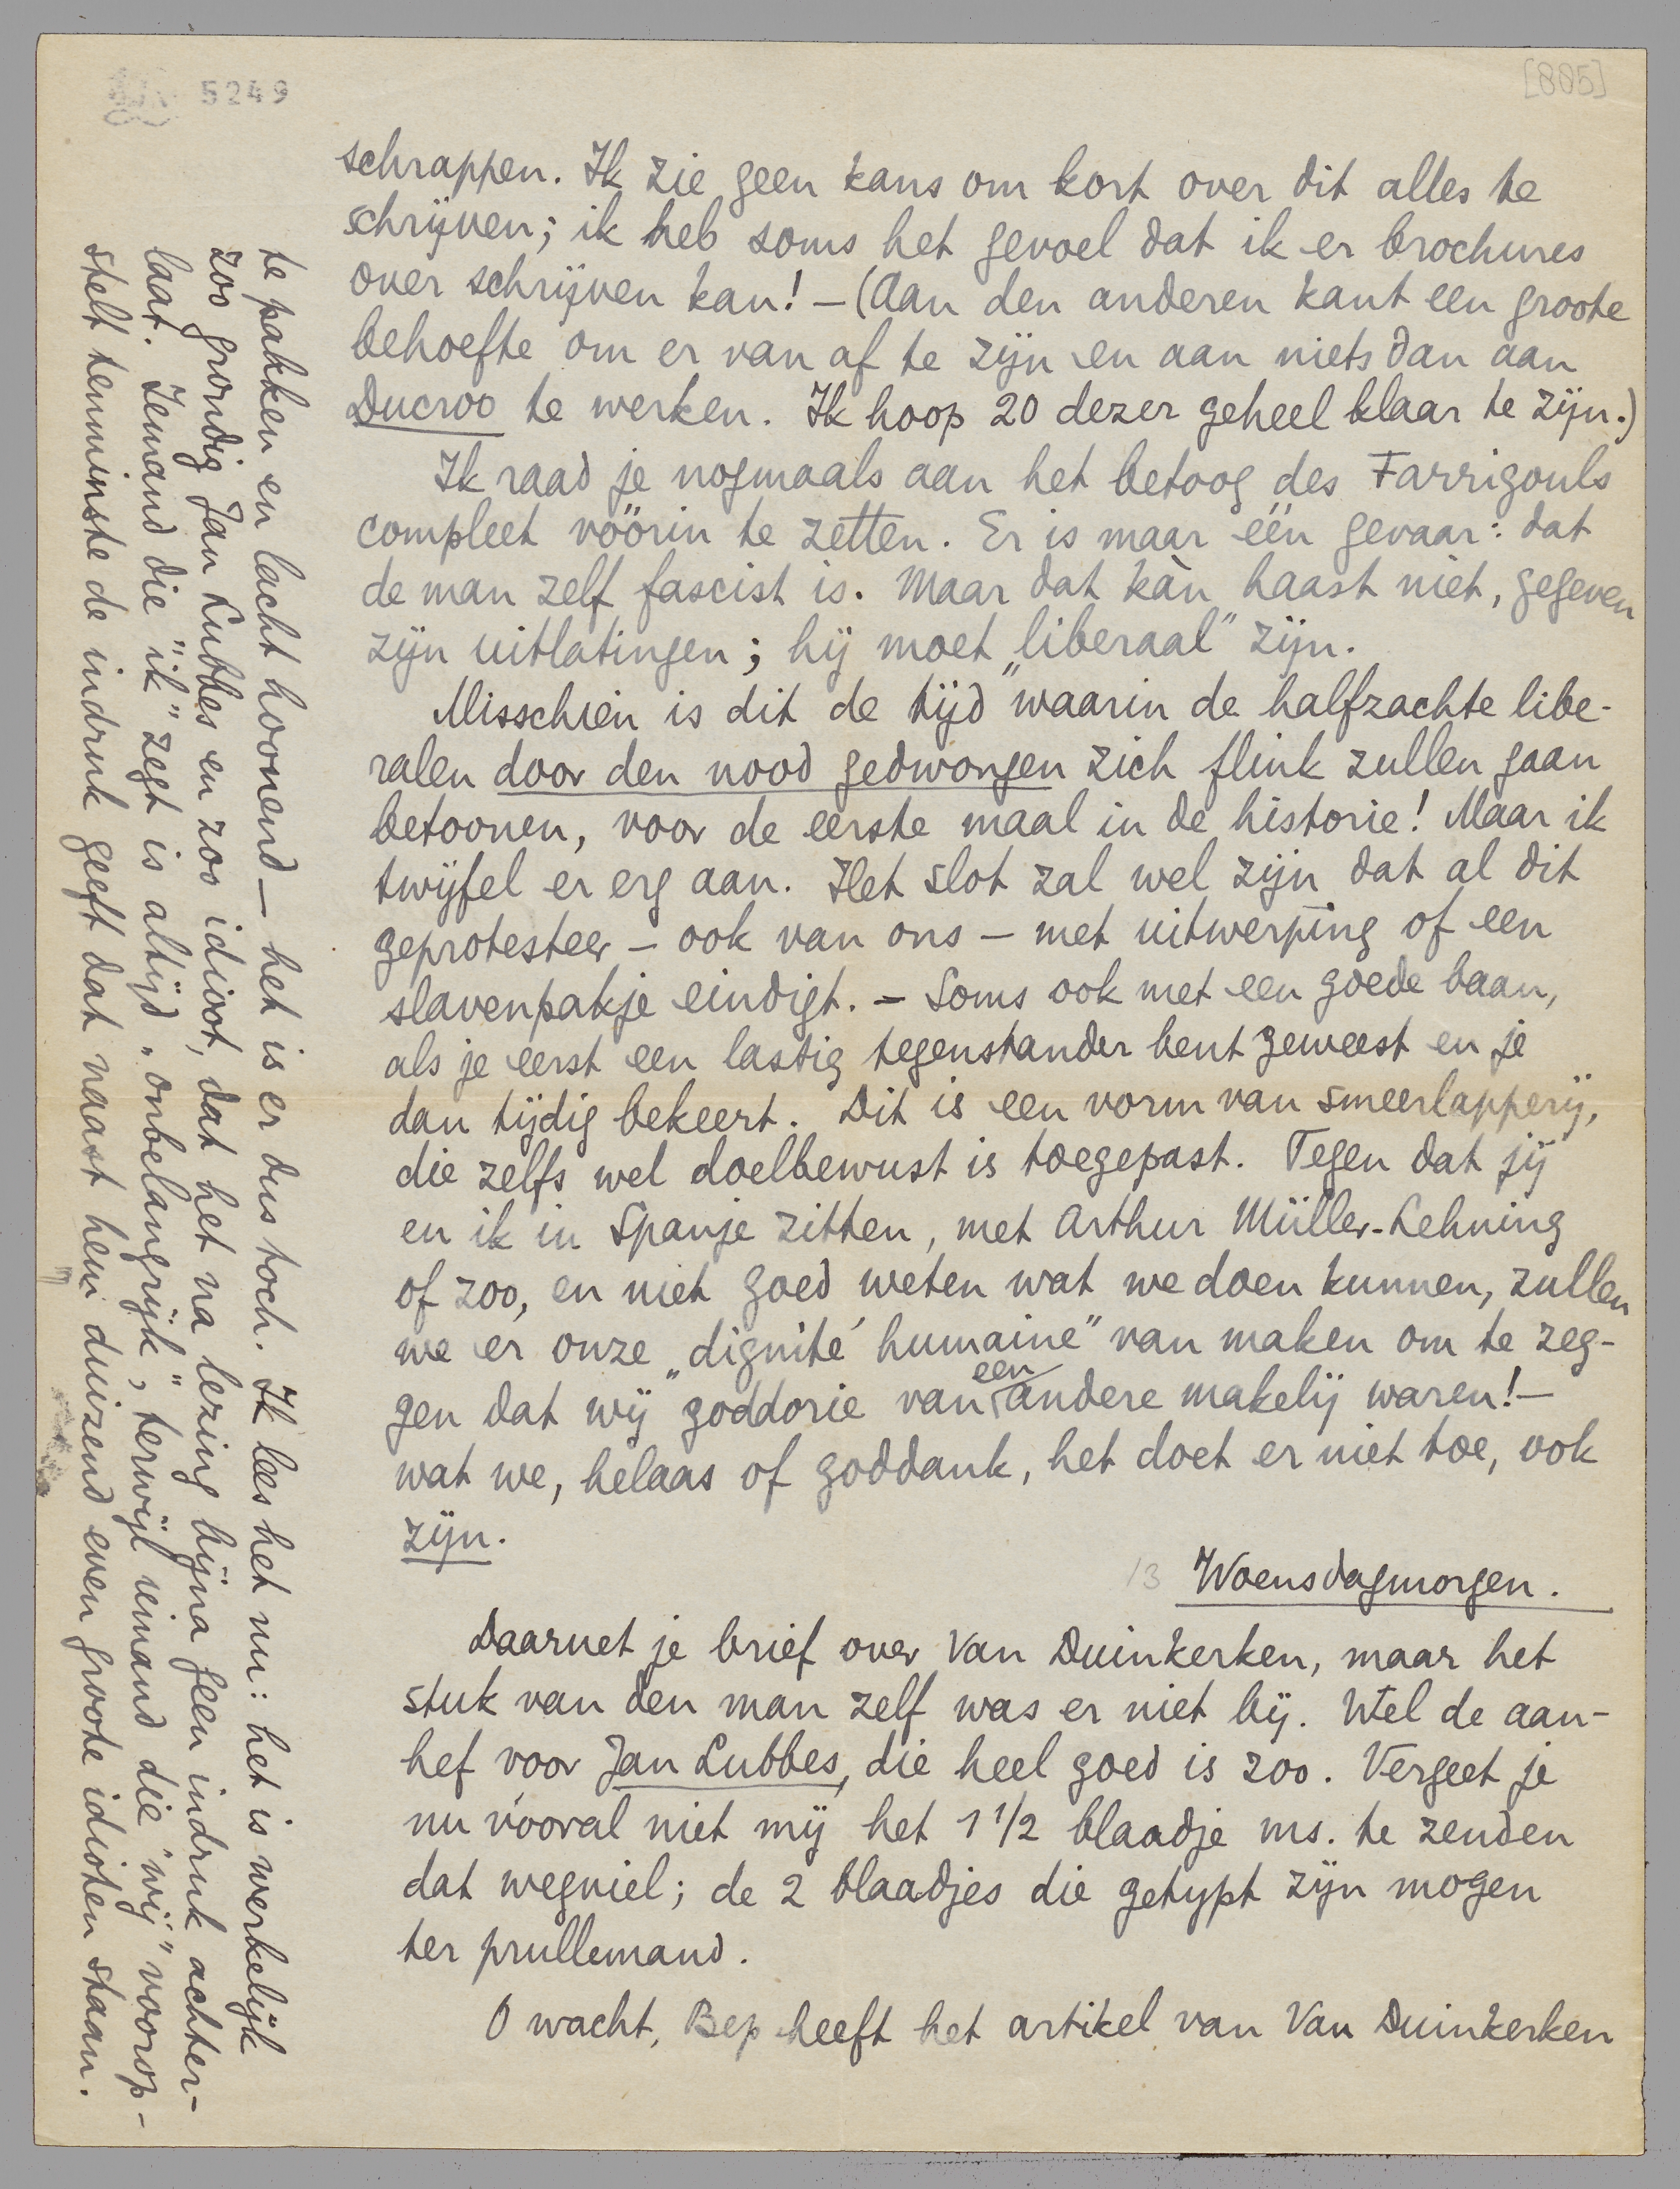 5249
[885]
schrappen. Ik zie geen kans om kort over dit alles te
schrijven; ik heb soms het gevoel dat ik er brochures
over schrijven kan! — (Aan den anderen kant een groote
behoefte om er van af te zijn en aan niets dan aan
Ducroo te werken. Ik hoop 20 dezer geheel klaar te zijn.)
Ik raad je nogmaals aan het betoog des Farrigouls
compleet vóórin te zetten. Er is maar één gevaar: dat
de man zelf fascist is. Maar dat kàn haast niet, gegeven
zijn uitlatingen; hij moet „liberaal" zijn.
Misschien is dit de tijd waarin de halfzachte libe-
ralen door den nood gedwongen zich flink zullen gaan
betoonen, voor de eerste maal in de historie! Maar ik
twijfel er erg aan. Het slot zal wel zijn dat al dit
geprotesteer — ook van ons — met uitwerping of een
slavenpakje eindigt. — Soms ook met een goede baan,
als je eerst een lastig tegenstander bent geweest en je
dan tijdig bekeert. Dit is een vorm van smeerlapperij,
die zelfs wel doelbewust is toegepast. Tegen dat jij
en ik in Spanje zitten, met Arthur Müller-Lehning
of zoo, en niet goed weten wat we doen kunnen, zullen
we er onze „dignité humaine" van maken om te zeg-
gen dat wij goddorie van een andere makelij waren! —
wat we, helaas of goddank, het doet er niet toe, ook
zijn.
13 Woensdagmorgen.
Daarnet je brief over Van Duinkerken, maar het
stuk van den man zelf was er niet bij. Wel de aan-
hef voor Jan Lubbes, die heel goed is zoo. Vergeet je
nu vooral niet mij het 1 1/2 blaadje ms. te zenden
dat wegviel; de 2 blaadjes die getypt zijn mogen
ter prullemand.
O wacht, Bep heeft het artikel van Van Duinkerken
te pakken en lacht hoonend — het is er dus toch. Ik lees het nu: het is werkelijk
zoo grondig Jan Lubbes en zoo idioot, dat het na lezing bijna geen indruk achter-
laat. Iemand die „ik" zegt is altijd „onbelangrijk", terwijl iemand die „wij" voorop-
stelt tenminste de indruk geeft dat naast hem duizend even groote idioten staan.